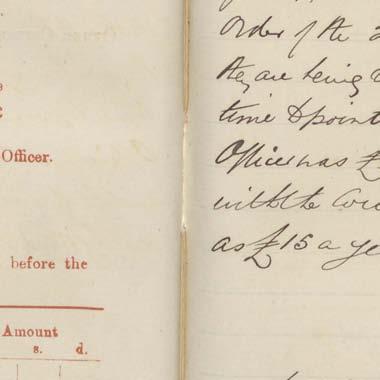 Officer.
before the
Amount
s. d.
Order of the
they are being
time to point
Officer was £
with the
as £15 a ye